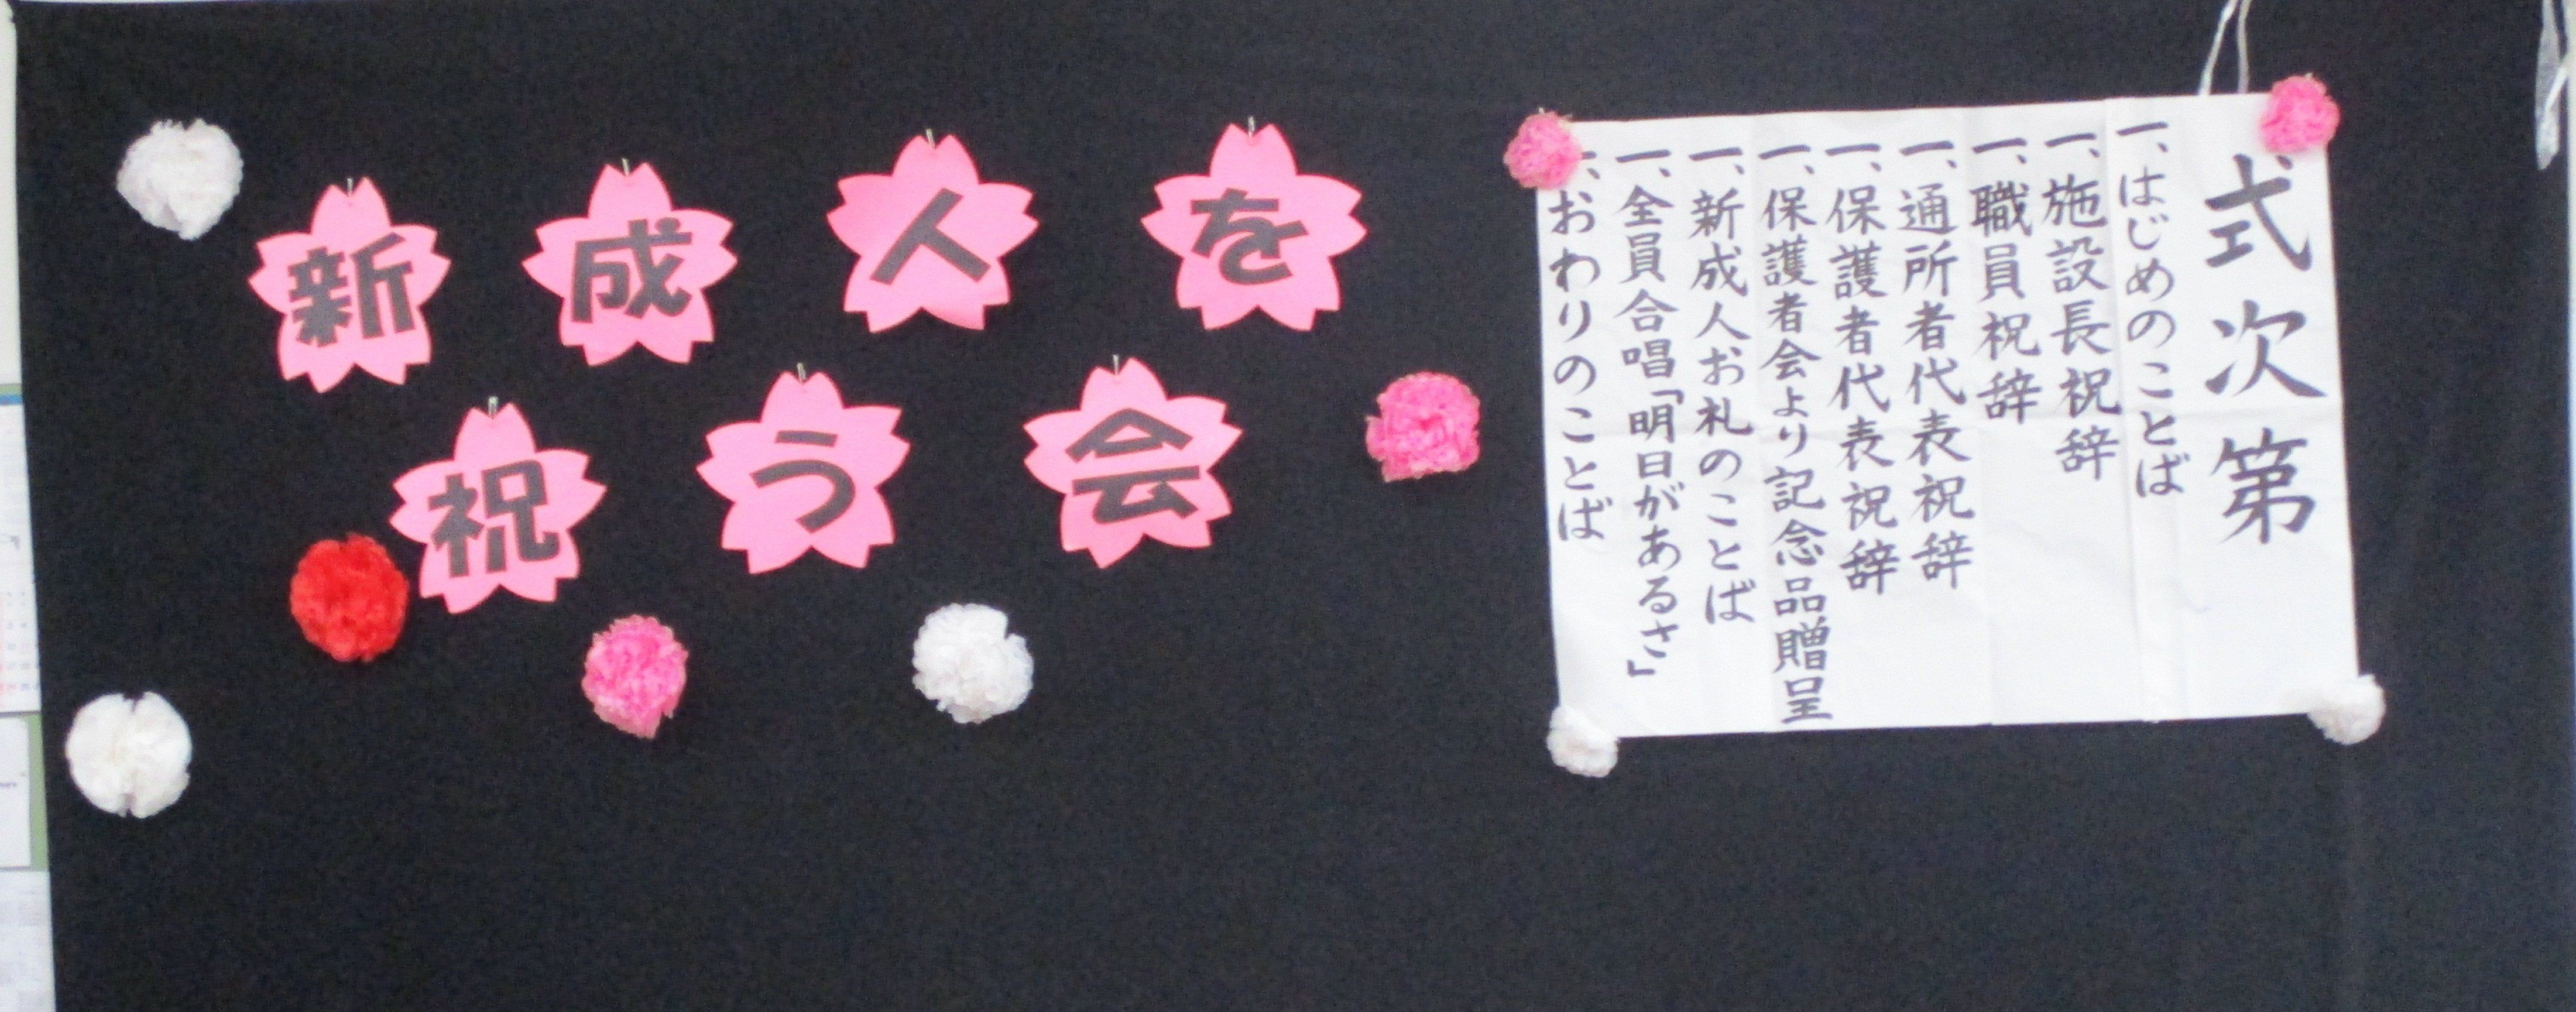 新成人を
祝う会
式次第
一、はじめのことば
一、施設長祝辞
一、職員祝辞
一、通所者代表祝辞
一、保護者代表祝辞
一、保護者会より記念品贈呈
一、新成人お礼のことば
一、全員合唱「明日があるさ」
一、おわりのことば